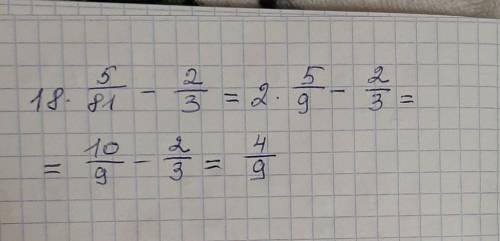 18 · 5/81 - 2/3 = 2 · 5/9 - 2/3 =
= 10/9 - 2/3 = 4/9